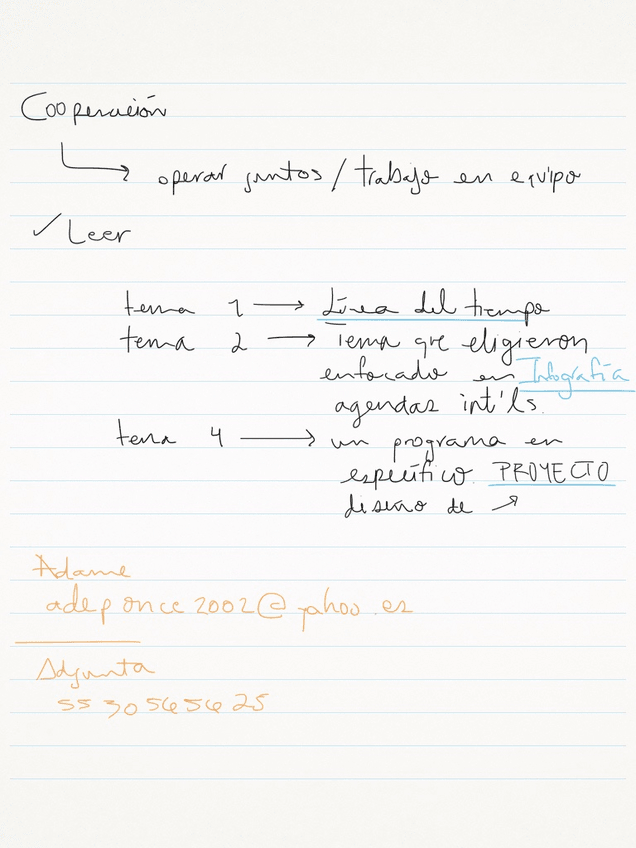 Cooperación
operar juntos / trabajo en equipo
✓ Leer
tema 1 → Línea del tiempo
tema 2 → Tema que eligieron
enfocado en Infografía
agendas int'ls.
tema 4 → un programa en
específico. PROYECTO
diseño de ↗
Adame
adeponce2002@yahoo.es
Adjunta
55 30 56 56 25